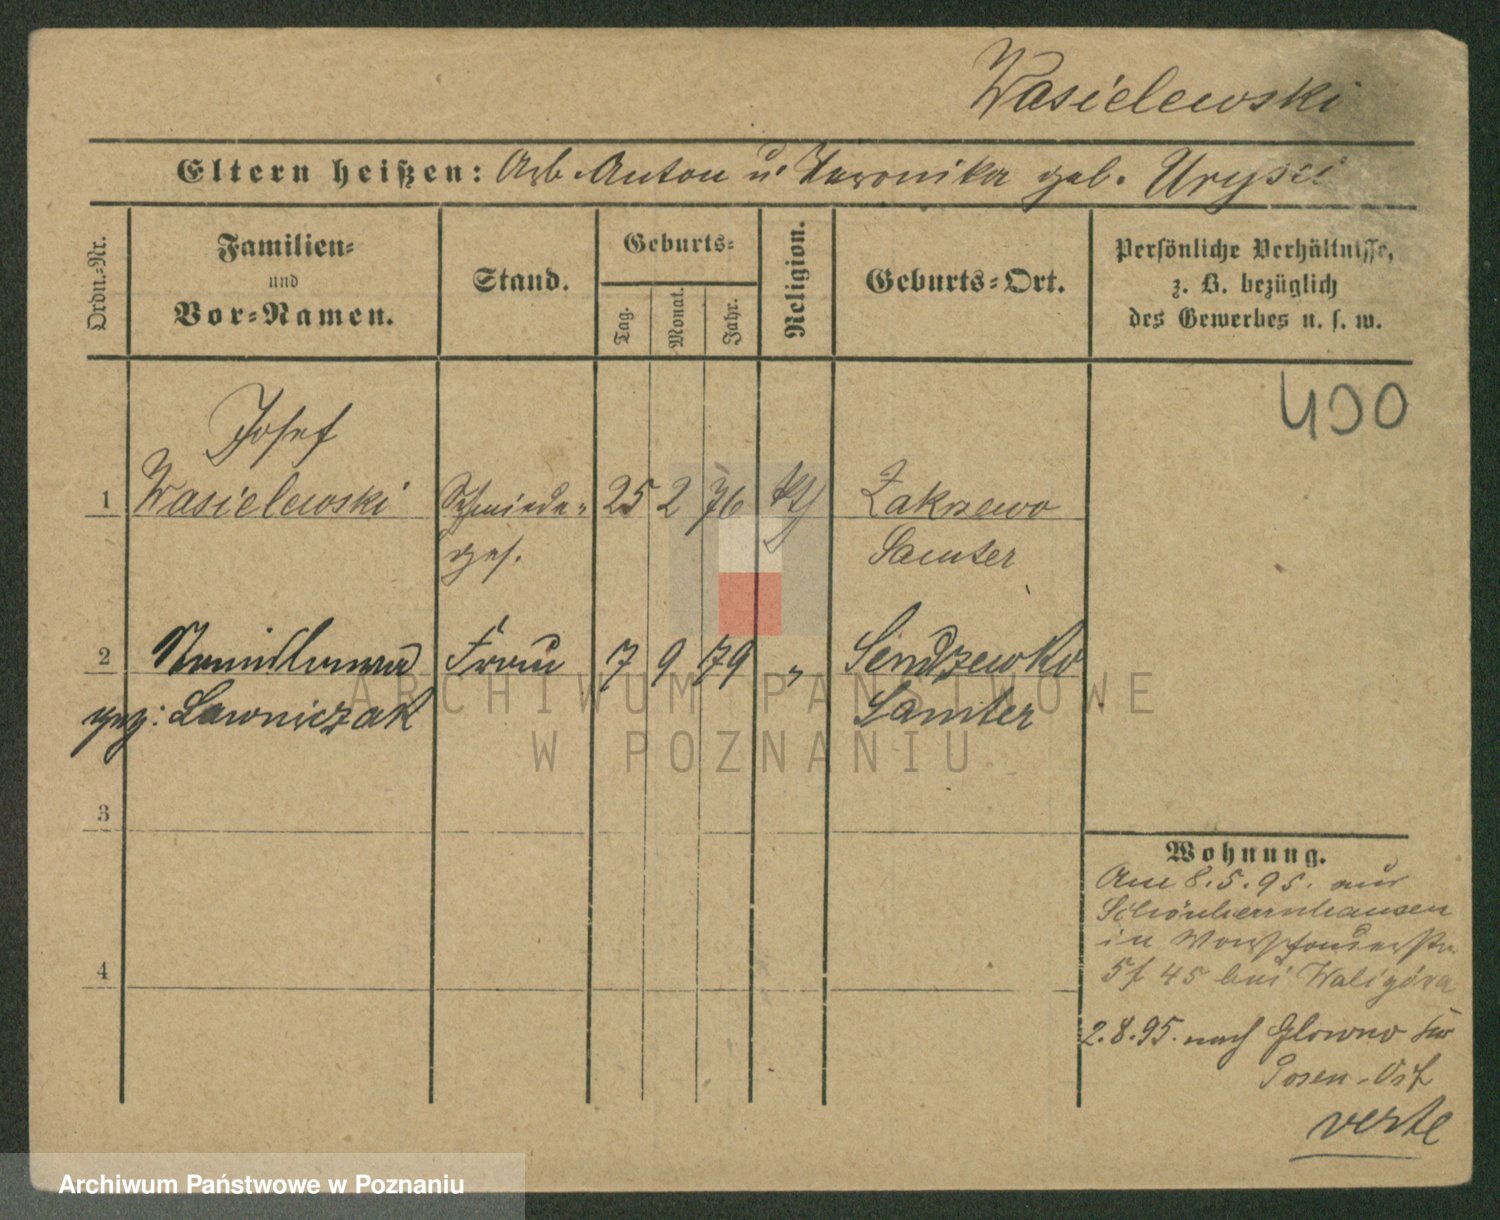 Wasielewski
Eltern heißen: Arb. Anton u. Veronika geb. Urysci
Ordn.-Nr.
Familien-
und
Vor-Namen.
Stand.
Geburts-
Tag.
Monat.
Jahr.
Religion.
Geburts-Ort.
Persönliche Verhältnisse,
z. B. bezüglich
des Gewerbes u. s. w.
490
Josef
1 Wasielewski Schmiede- 25 2 76 kth Zakrzewo
ges. Samter
2 Stanislawa Frau 7 9 79 " Sendzewko
geb: Lawniczak Samter
3
4
Wohnung.
Am 8.5.95. aus
Schönherrnhausen
in
45 bei Waligóra
2.8.95. nach Glowno
Posen-Ost
verte
ARCHIWUM PAŃSTWOWE
W POZNANIU
Archiwum Państwowe w Poznaniu